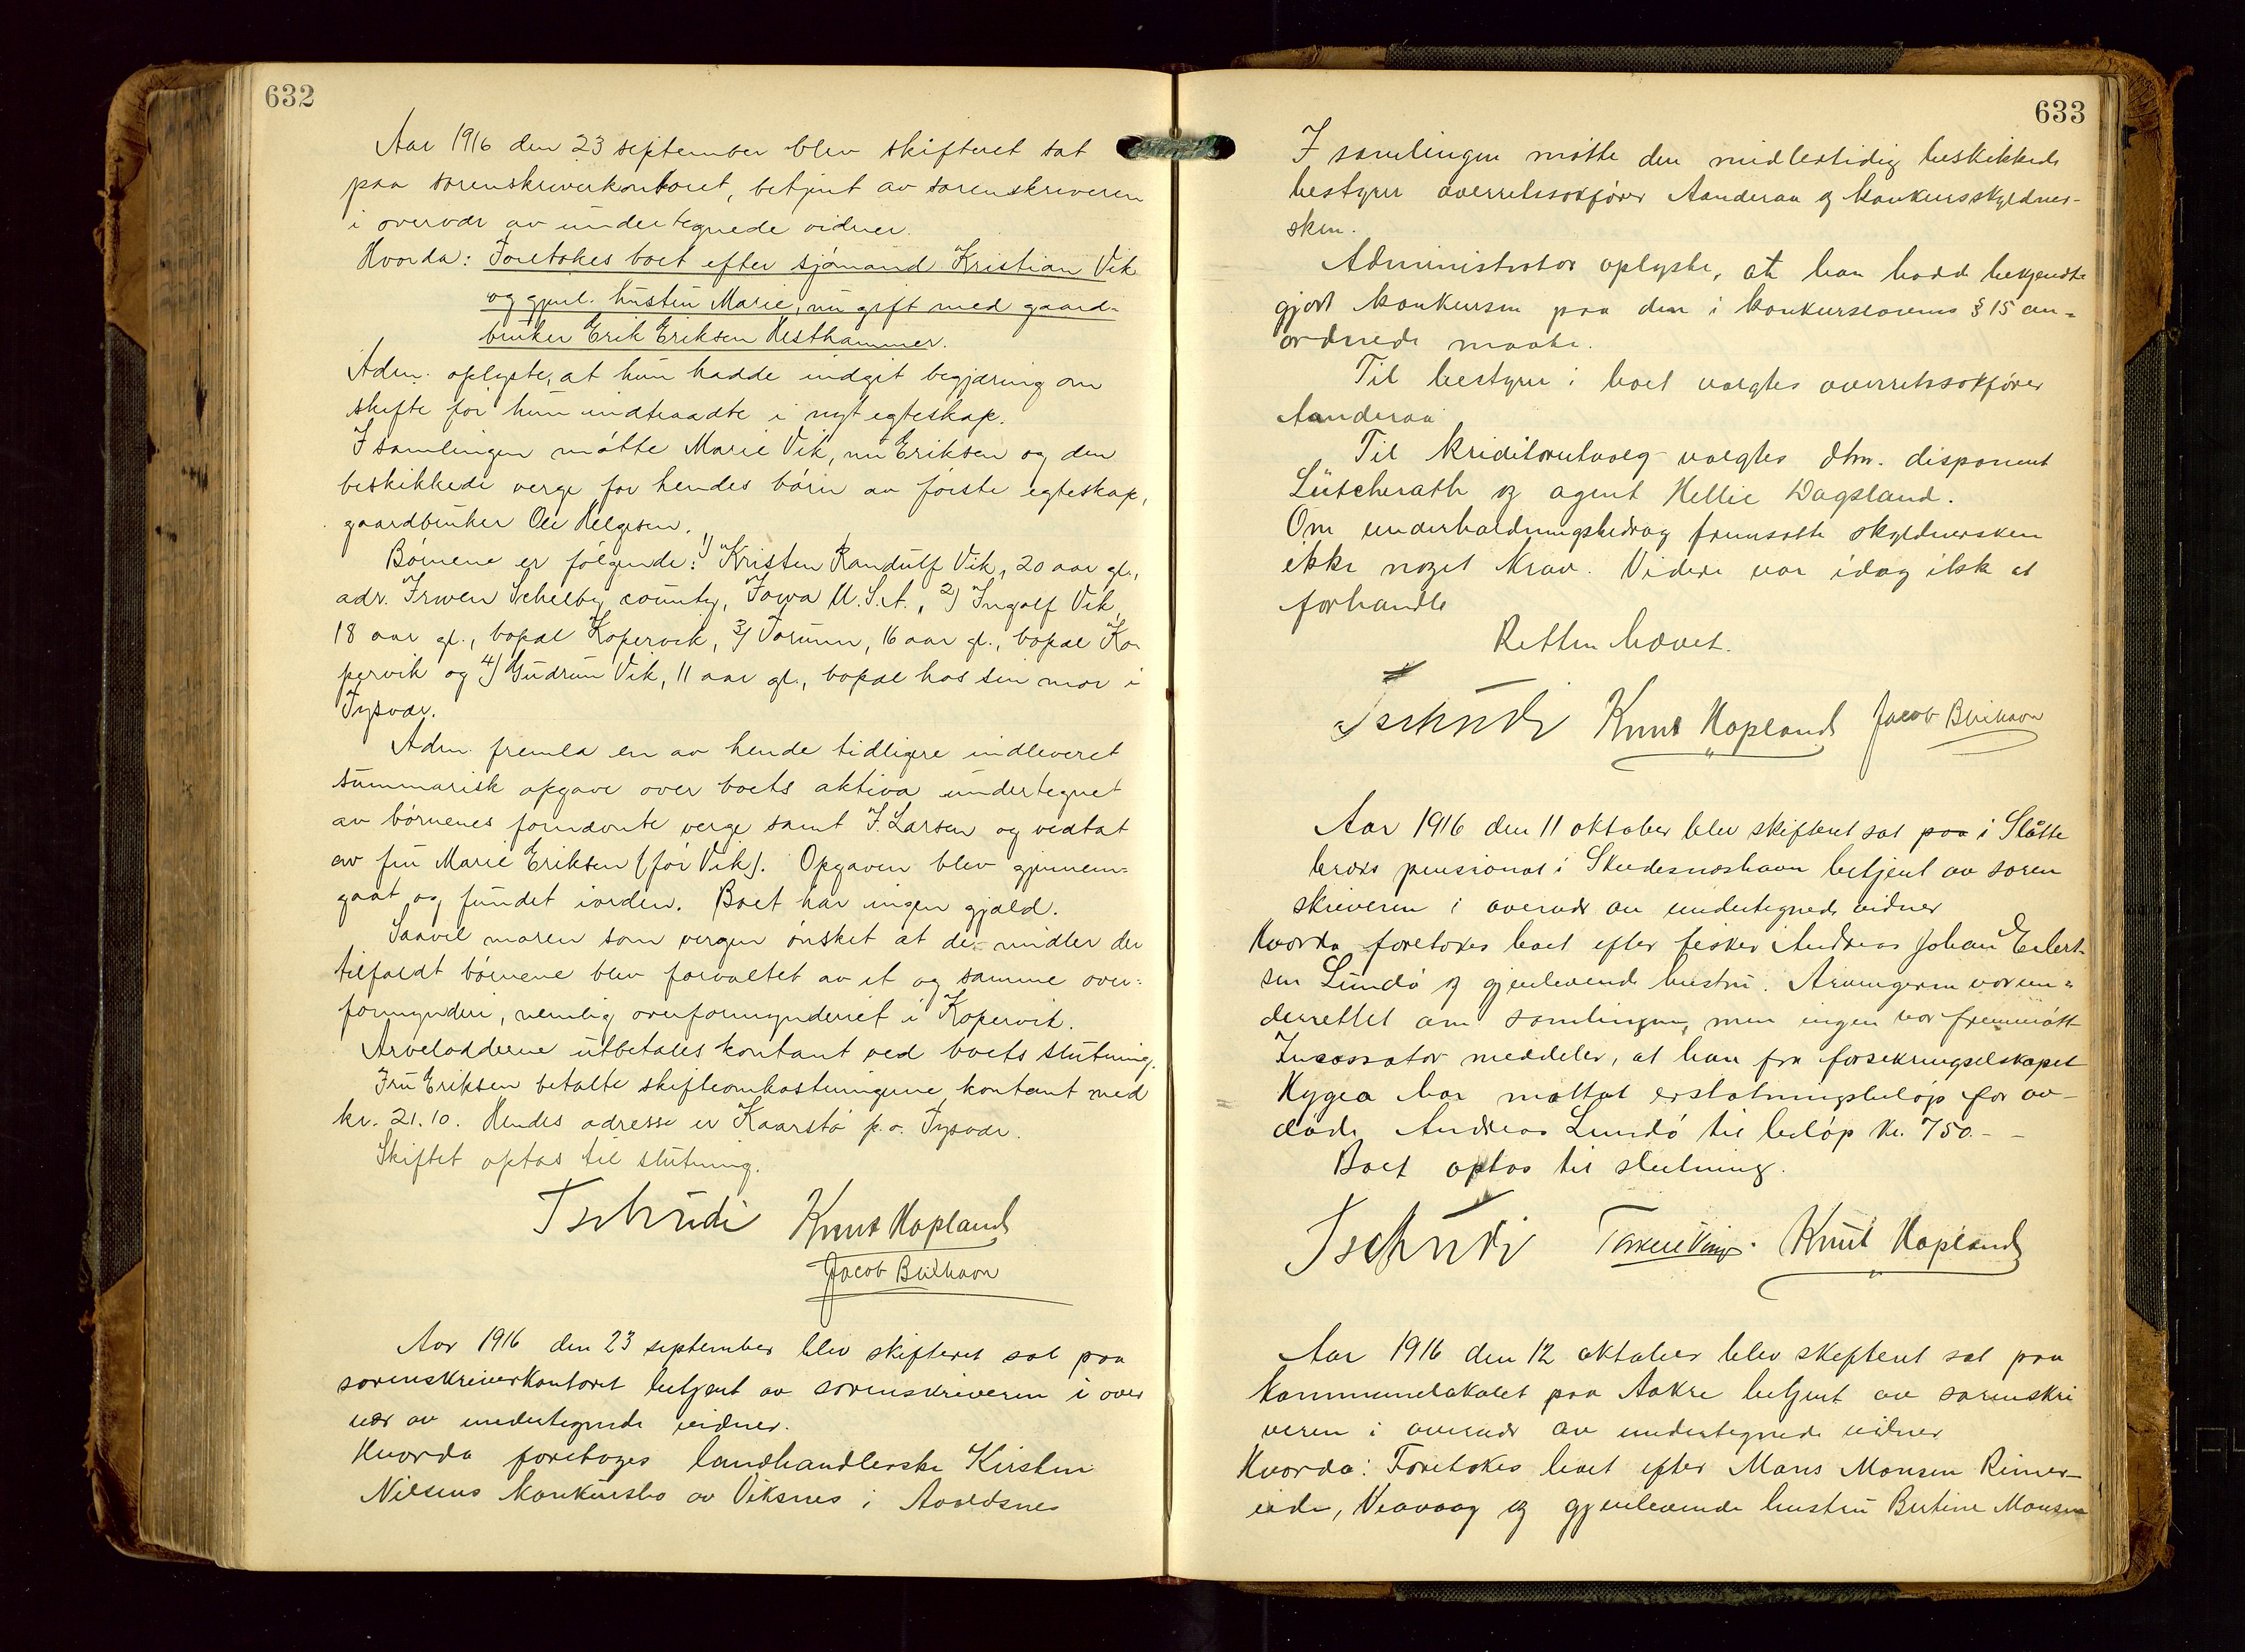 632
Aar 1916 den 23 september blev skifteret sat
paa sorenskriverkontoret, betjent av sorenskriveren
i overvær av undertegnede vidner.
Hvorda: Foretokes boet efter sjømand Kristian Vik
og gjenl. hustru Marie, nu gift med gaard-
bruker Erik Eriksen Hesthammer.
Adm. oplyste, at hun hadde indgit begjæring om
skifte før hun indtraadte i nyt egteskap.
I samlingen møtte Marie Vik, nu Eriksen og den
beskikkede verge for hendes børn av første egteskap,
gaardbruker Ole Helgesen.
Børnene er følgende: 1) Kristen Randulf Vik, 20 aar gl.,
adr. Irwen Schelby county, Iowa U.S.A., 2) Ingolf Vik,
18 aar gl., bopæl Kopervik, 3) Torunn, 16 aar gl., bopæl Ko-
pervik og 4) Gudrun Vik, 11 aar gl., bopæl hos sin mor i
Tysvær.
Adm. fremla en av hende tidligere indleveret
summarisk opgave over boets aktiva undertegnet
av børnenes fornævnte verge samt J. Larsen og vedtat
av fru Marie Eriksen (før Vik). Opgaven blev gjennem-
gaat og fundet iorden. Boet har ingen gjæld.
Saavel moren som vergen ønsket at de midler der
tilfaldt børnene blev forvaltet av et og samme over-
formynderi, nemlig overformynderiet i Kopervik.
Arvelodderne utbetales kontant ved boets slutning.
Fru Eriksen betalte skifteomkostningene kontant med
kr. 21.10. Hendes adresse er Kaarstø p.o. Tysvær.
Skiftet optas til slutning.
Tschudi Knut Hopland
Jacob Buhavn
Aar 1916 den 23 september blev skifteret sat paa
sorenskriverkontoret betjent av sorenskriveren i over
vær av undertegnede vidner.
Hvorda foretoges landhandlerske Kirsten
Nilsens konkursbo av Viksnes i Avaldsnes
633
I samlingen møtte den midlertidig beskikkede
bestyrer overretssakfører Aanderaa og konkursskyldner-
sken.
Administrator oplyste, at han hadde bekjendt-
gjort konkursen paa den i konkurslovens § 15 an-
ordnede maate.
Til bestyrer i boet valgtes overretssakfører
Aanderaa
Til kreditorutvalg valgtes dhrr. disponent
Lütcherath og agent Hellie Dagsland.
Om underholdningsbidrag fremsatte skyldnersken
ikke noget krav. Videre var idag ikke at
forhandle
Retten hævet.
Tschudi Knut Hopland Jacob Buhavn
Aar 1916 den 11 oktober blev skifteret sat paa i Slåtte
brærs pensionat i Skudesneshavn betjent av soren
skriveren i overvær av undertegnede vidner
Hvorda foretokes boet efter fisker Andreas Johan Eilert-
sen Lundø og gjenlevende hustru. Arvingerne var un-
derrettet om samlingen, men ingen var fremmøtt
Incassator meddeler, at han fra forsikringselskapet
Hygea har mottat erstatningsbeløp for av-
døde Andreas Lundø til beløp kr. 750.-
Boet optas til slutning.
Tschudi Knut Hopland
Aar 1916 den 12 oktober blev skifteret sat paa
kommunelokalet paa Aakre betjent av sorenskri
veren i overvær av undertegnede vidner
Hvorda: Foretokes boet efter Mons Monsen Rimer-
eide, Veavaag og gjenlevende hustru Bertine Monsen